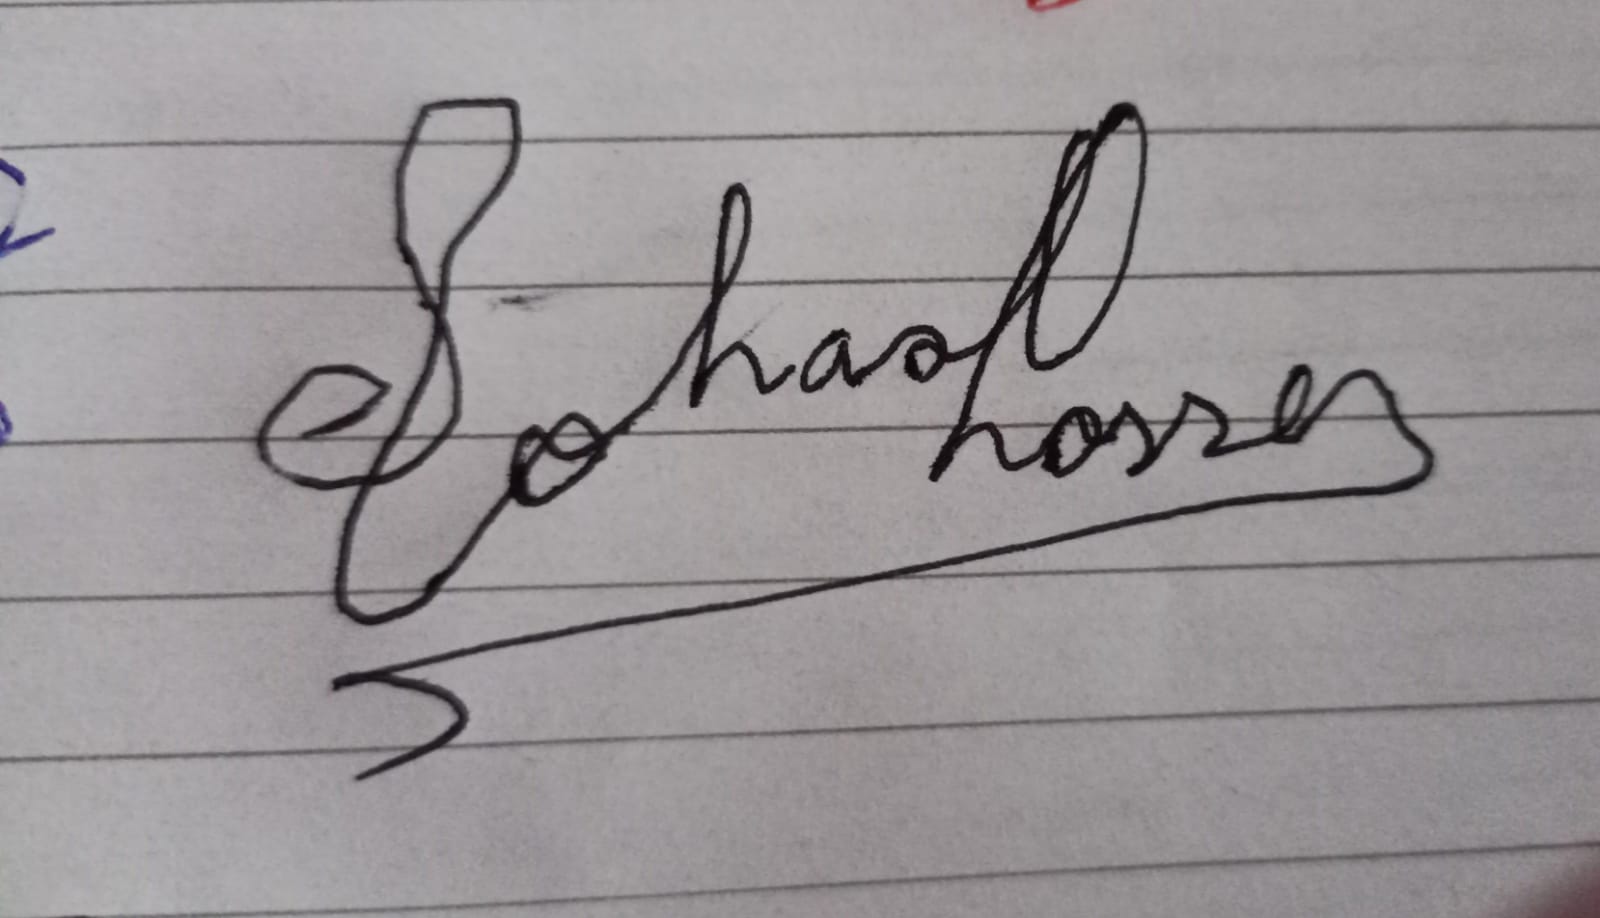 Sohaof
hossen